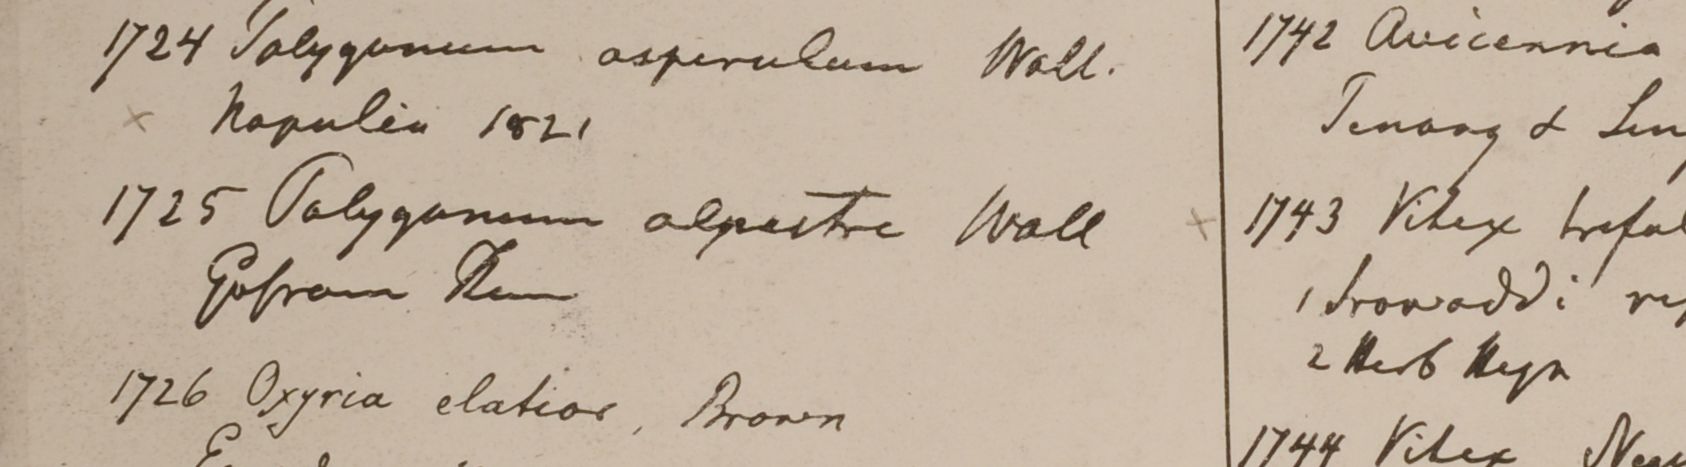 1724 Polygonum asperulum Wall.
× Napalia 1821
1725 Polygonum alpestre Wall
1726 Oxyria elatior, Brown
1742 Avicennia
Penang &
× 1743 Vitex
1 Irowaddi
2 Herb Heyn
1744 Vitex